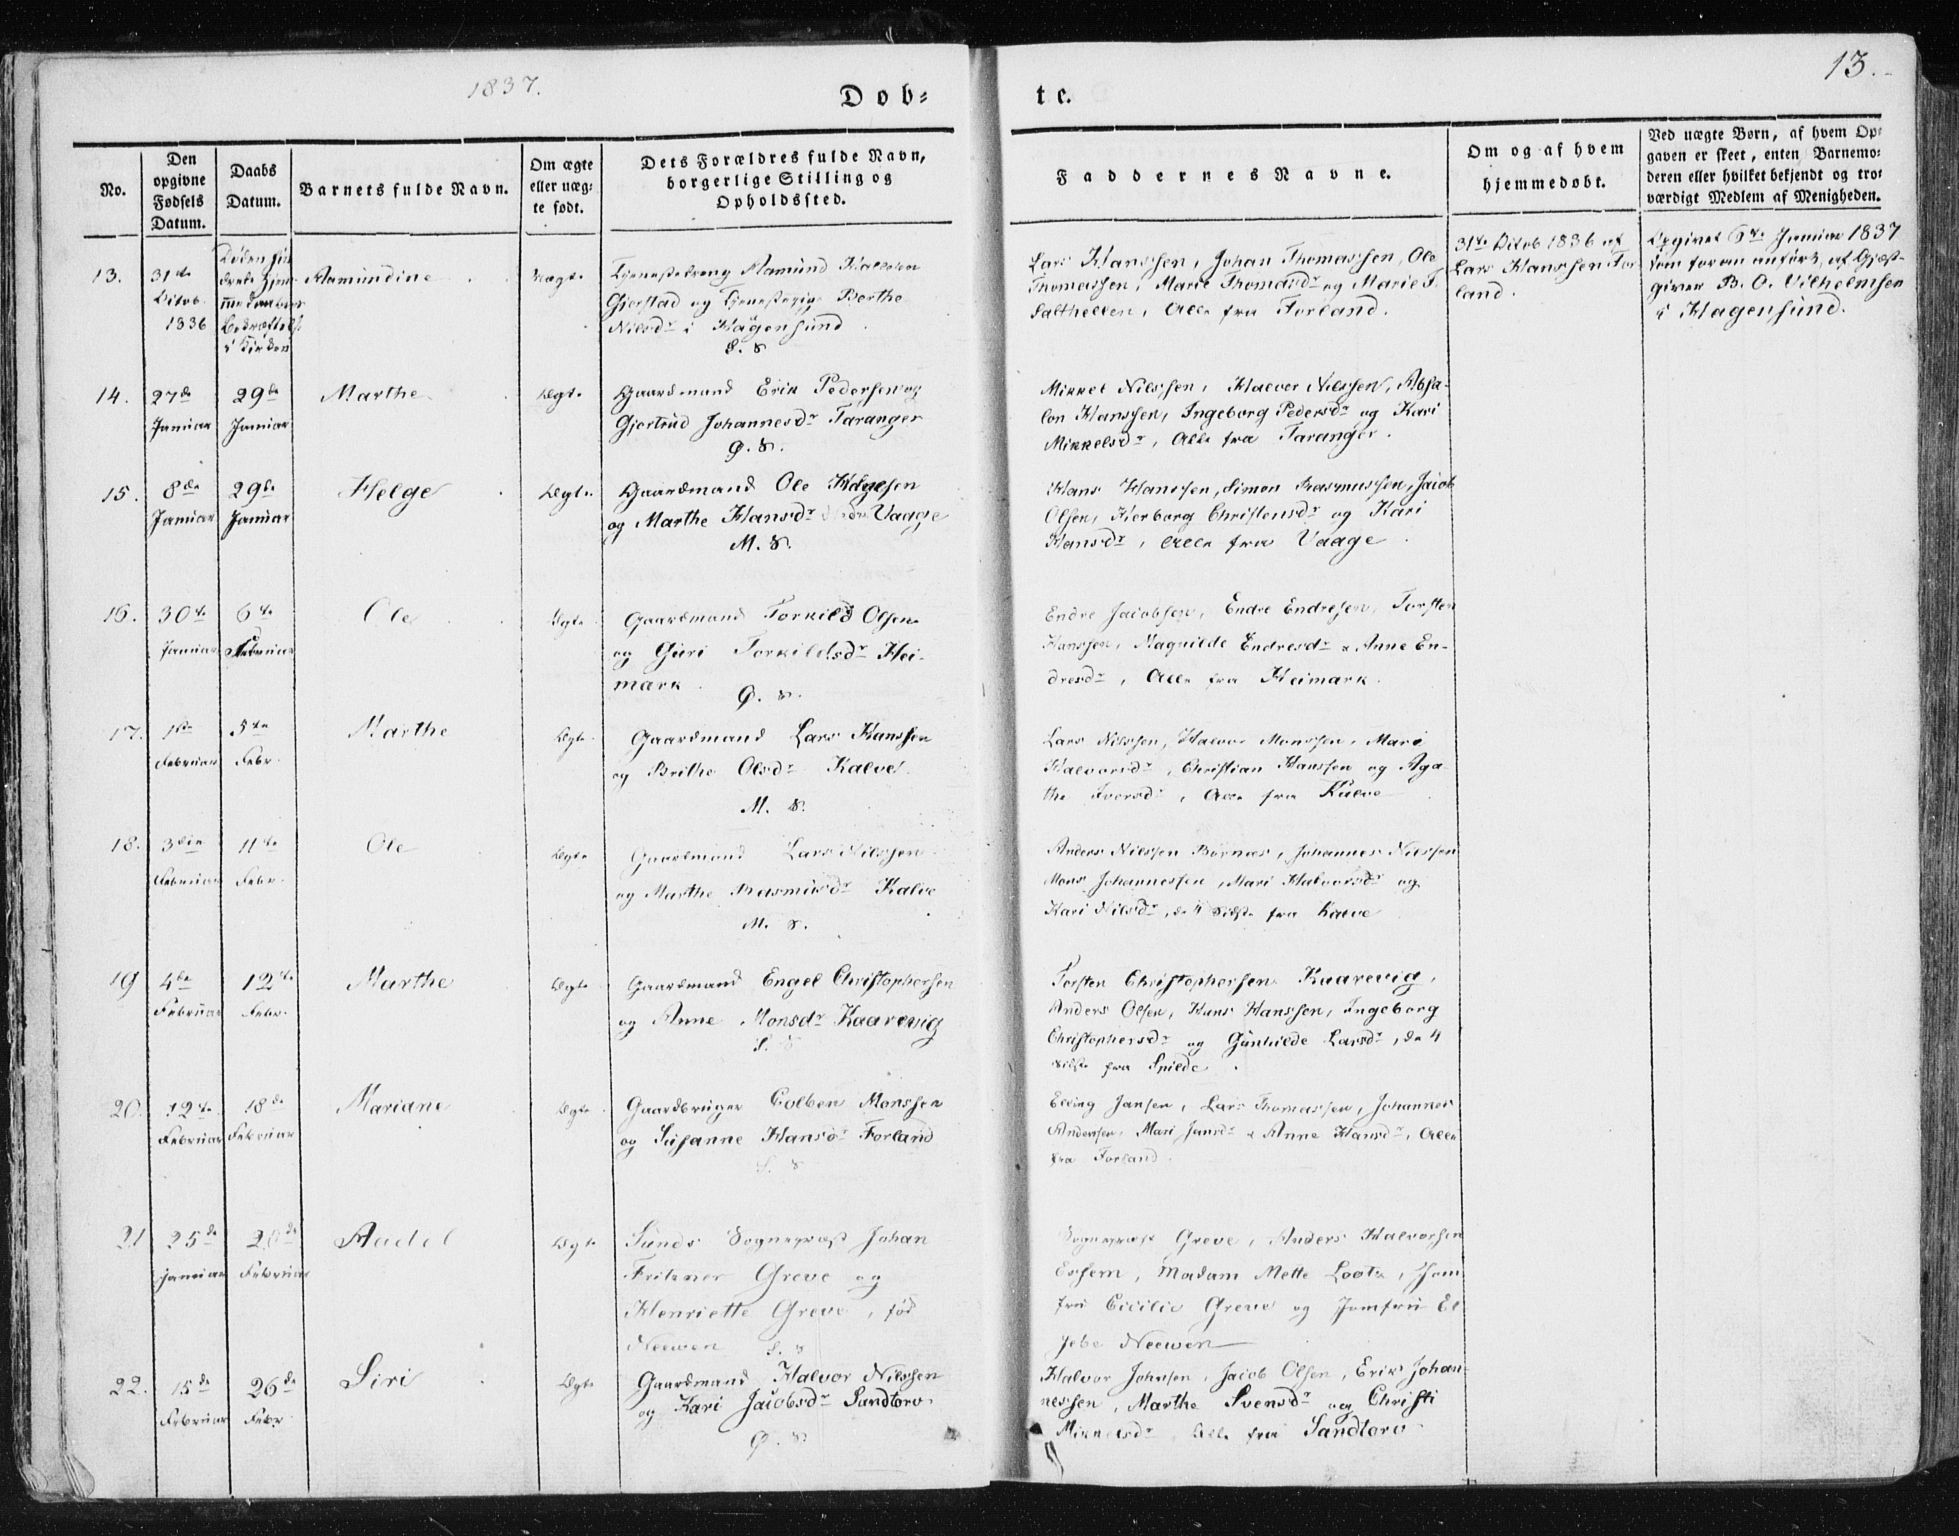 1837.
Dob=
te.
13.
No.
Den
opgivne
Fødsels
Datum.
Daabs
Datum.
Barnets fulde Navn.
Om ægte
eller uæg-
te født.
Dets Forældres fulde Navn,
borgerlige Stilling og
Opholdssted.
Faddernes Navne.
Om og af hvem
hjemmedøbt.
Ved uægte Børn, af hvem Op-
gaven er skeet, enten Barnemo-
deren eller hvilket bekjendt og tro-
værdigt Medlem af Menigheden.
13.
31te
Octob.
1836
i Kirken
Aamundine
Uægte
Tjenestedreng Aamund
Gjerstad og Tjenestepige Berthe
Nilsdr i Hagensund
S. S.
Lars Hanssen, Johan Thomassen, Ole
Thomassen, Marie Thomasdr og Marie
Salthellen, Alle fra Forland.
31te Octob 1836 af
Lars Hanssen For
land.
Opgivet 6te Januar 1837
som foran anført, af Gjæst-
giver B. O. Vilhelmsen
i Hagensund.
14.
27de
Januar
29de
Januar
Marthe
Ægte
Gaardmand Erik Pedersen og
Gjertrud Johannesdr Taranger
Ø. S.
Mikkel Nilssen, Halvor Nilssen, Absa-
lon Hanssen, Ingeborg Pedersdr og Kari
Mikkelsdr, Alle fra Taranger.
15.
8de
Januar
29de
Januar
Helge
Ægte
Gaardmand Ole Helgesen
og Marthe Hansdr Vaage
M. S.
Hans Hanssen, Simon Rasmussen, Jacob
Olsen, Herborg Christensdr og Kari
Hansdr, Alle fra Vaage.
16.
30te
Januar
6te
Februar
Ole
Ægte
Gaardmand Torkild Olsen
og Guri Torkildsdr Hei-
mark.
Ø. S.
Endre Jacobsen, Endre Endresen, Torsten
Hanssen, Magnilde Endresdr & Anne En-
dresdr, Alle fra Heimark.
17.
1ste
Februar
5te
Febr.
Marthe
Ægte
Gaardmand Lars Hanssen
og Brithe Olsdr Kalve.
M. S.
Lars Nilssen, Halvor Monssen, Mari
Halvorsdr, Christian Hanssen og Aga-
the Iversdr, Alle fra Kalve
18.
3die
Februar
11te
Febr.
Ole
Ægte
Gaardmand Lars Nilssen
og Marthe Rasmusdr Kalve
M. S.
Anders Nilssen Børnæs, Johannes Nilssen
Mons Johannessen, Mari Halvorsdr og
Kari Nilsdr, de 4 sidste fra Kalve
19
4de
Februar
12te
Febr.
Marthe
Ægte
Gaardmand Engel Christophersen
og Anne Monsdr Kaarevig
S. S.
Torsten Christophersen Kaarevig,
Anders Olsen, Hans Hanssen, Ingeborg
Christophersdr og Gunhilde Larsdr, de 4
sidste fra Spilde.
20.
12te
Februar
18de
Februar
Mariane
Ægte
Gaardbruger Colben Monssen
og Susanne Hansdr Forland
S. S.
Elling Jansen, Lars Thomassen, Johannes
Andersen, Mari Jansdr & Anne Hansdr, Alle
fra Forland.
21
25de
Januar
20de
Februar
Aadel
Ægte
Sunds Sognepræst Johan
Fritzner Greve og
Henriette Greve, fød
Neewen
S. S.
Sognepræst Greve, Anders Halvorsen
Madam Mette Lootz, Jom
fru Cicilie Greve og Jomfru El
sebe Neewen
22.
15de
Februar
26de
Febr.
Siri
Ægte
Gaardmand Halvor Nilssen
og Kari Jacobsdr Sandtorv
Ø. S.
Halvor Johnsen, Jacob Olsen, Erik Johan-
nessen, Marthe Svensdr og Christi
Mikkelsdr, Alle fra Sandtorv